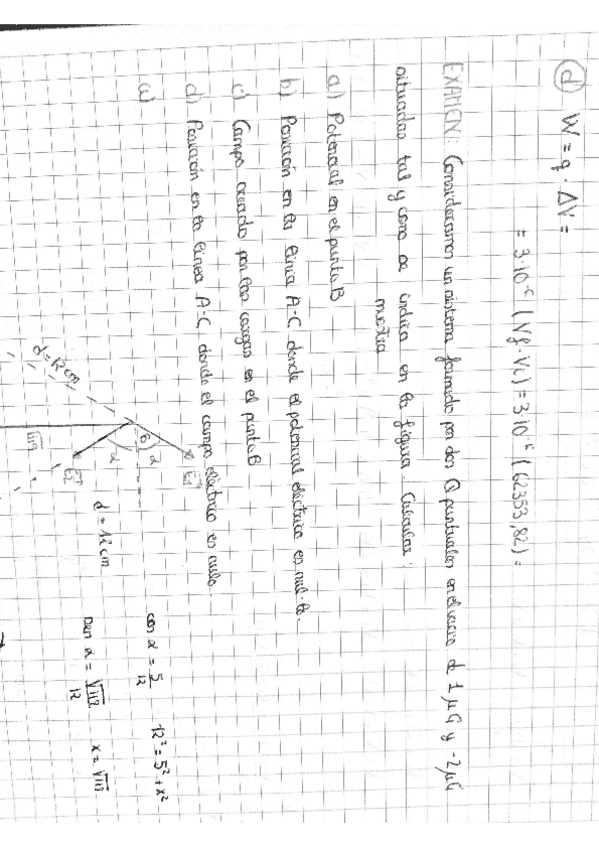 d) W = q · ΔV =
= 3·10⁻⁶ (Vf - Vi) = 3·10⁻⁶ (62353,82) =
EXAMEN: Consideramos un sistema formado por dos Q puntuales en el vacío d 1 μC y -2 μC
situadas tal y como se indica en la figura. Calcular:
muestra
a) Potencial en el punto B
b) Posición en la línea A-C donde el potencial eléctrico es nulo.
c) Campo creado por las cargas en el punto B
d) Posición en la línea A-C donde el campo eléctrico es nulo.
a)
E₁
B α
α
E₂
d = 12 cm
√119
d = 12 cm
cos α = 5/12 12² = 5² + x²
sen α = √119/12 x = √119